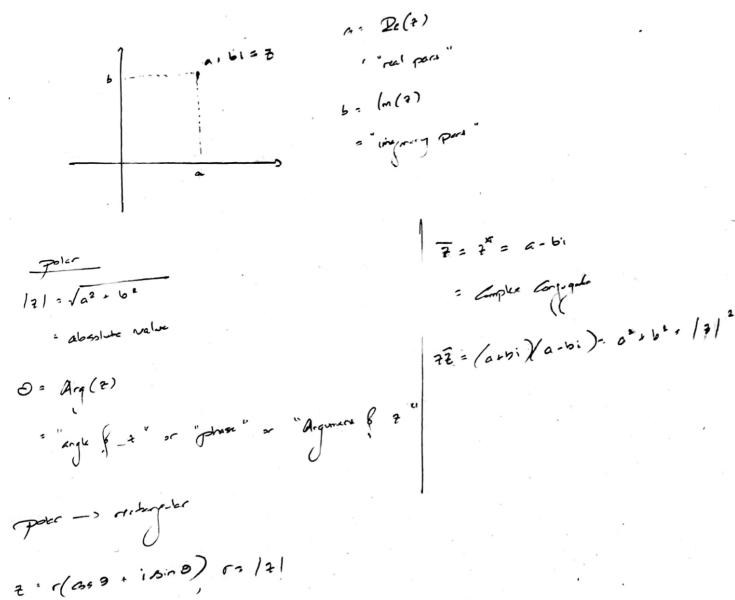 a + bi = z
b
a
a = Re(z)
= "real part"
b = Im(z)
= "imaginary part"
polar
|z| = √a² + b²
= absolute value
θ = Arg(z)
= "angle of z" or "phase" or "Argument of z"
polar → rectangular
z = r(cos θ + i sin θ), r = |z|
z̄ = z* = a - bi
= Complex Conjugate
zz̄ = (a+bi)(a-bi) = a² + b² = |z|²